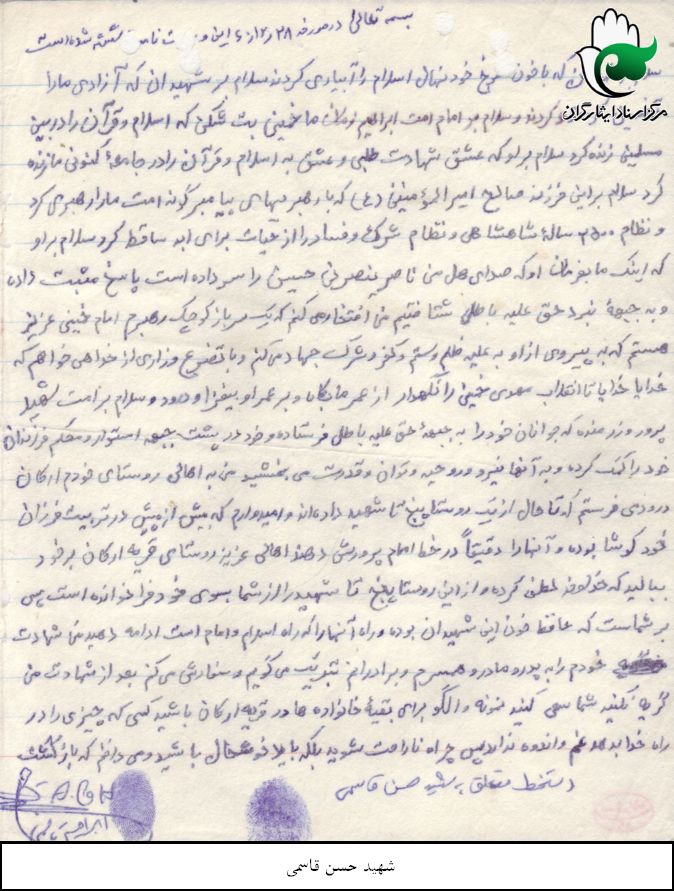 بسمه تعالی در مورخه ۶۰/۲/۲۸ این وصیت نامه نوشته شده است
مرکز اسناد ایثارگران
که با خون سرخ خود نهال اسلام را آبیاری کردند سلام بر شهیدان که آزادی ما را
کردند و سلام بر امام امت ابراهیم زمان ما خمینی بت شکن که اسلام و قرآن را در بین
مسلمین زنده کرد سلام بر او که عشق شهادت طلبی و عشق به اسلام و قرآن را در جامعهٔ کنونی ما زنده
کرد سلام بر این فرزند صالح امیرالمؤمنین (ع) که با رهبریهای پیامبر گونه امت ما را رهبری کرد
و نظام ۲۵۰۰ سالهٔ شاهنشاهی و نظام شرک و فساد را از حیات برای ابد ساقط کرد سلام بر او
که اینک ما بفرمان او که صدای هل من ناصر ینصرنی حسین را سر داده است پاسخ مثبت داده
و به جبههٔ نبرد حق علیه باطل شتافتیم من افتخار می کنم که یک سرباز کوچک رهبرم امام خمینی عزیز
هستم که به پیروی از او به علیه ظلم و ستم و کفر و شرک جهاد می کنم و با تضرع و زاری از خدا می خواهم که
خدایا خدایا تا انقلاب مهدی خمینی را نگهدار از عمر ما بکاه و بر عمر او بیفزا و درود و سلام بر امت شهید
پرور و رزمنده که جوانان خود را به جبههٔ حق علیه باطل فرستاده و خود در پشت جبهه استوار و محکم فرزندان
خود را کمک کرده و به آنها نیرو و روحیه و توان و قدرت می بخشید من به اهالی روستای خودم ارکان
درود می فرستم که تا حال از یک روستا پنج تا شهید داده اند و امیدوارم که بیش از پیش در تربیت فرزندان
خود کوشا بوده و آنها را دقیقاً در خط امام پرورش دهند اهالی عزیز روستای قریه ارکان بر خود
ببالید که خداوند لطف کرده و از این روستا پنج تا شهید را از شما بسوی خود فرا خوانده است پس
بر شماست که حافظ خون این شهیدان بوده و راه آنها را که راه اسلام و امام است ادامه دهید من شهادت
خودم را به پدر و مادر و همسرم و برادرانم تبریک می گویم و سفارش می کنم بعد از شهادت من
گریه نکنید شما سعی کنید نمونه و الگو برای بقیهٔ خانواده ها در قریه ارکان باشید کسی که چیزی را در
راه خدا بدهد غم و اندوه ندارد پس چرا ناراحت شوید بلکه باید خوشحال باشید و می دانم که بازگشت
دستخط متعلق به شهید حسن قاسمی
شهید حسن قاسمی